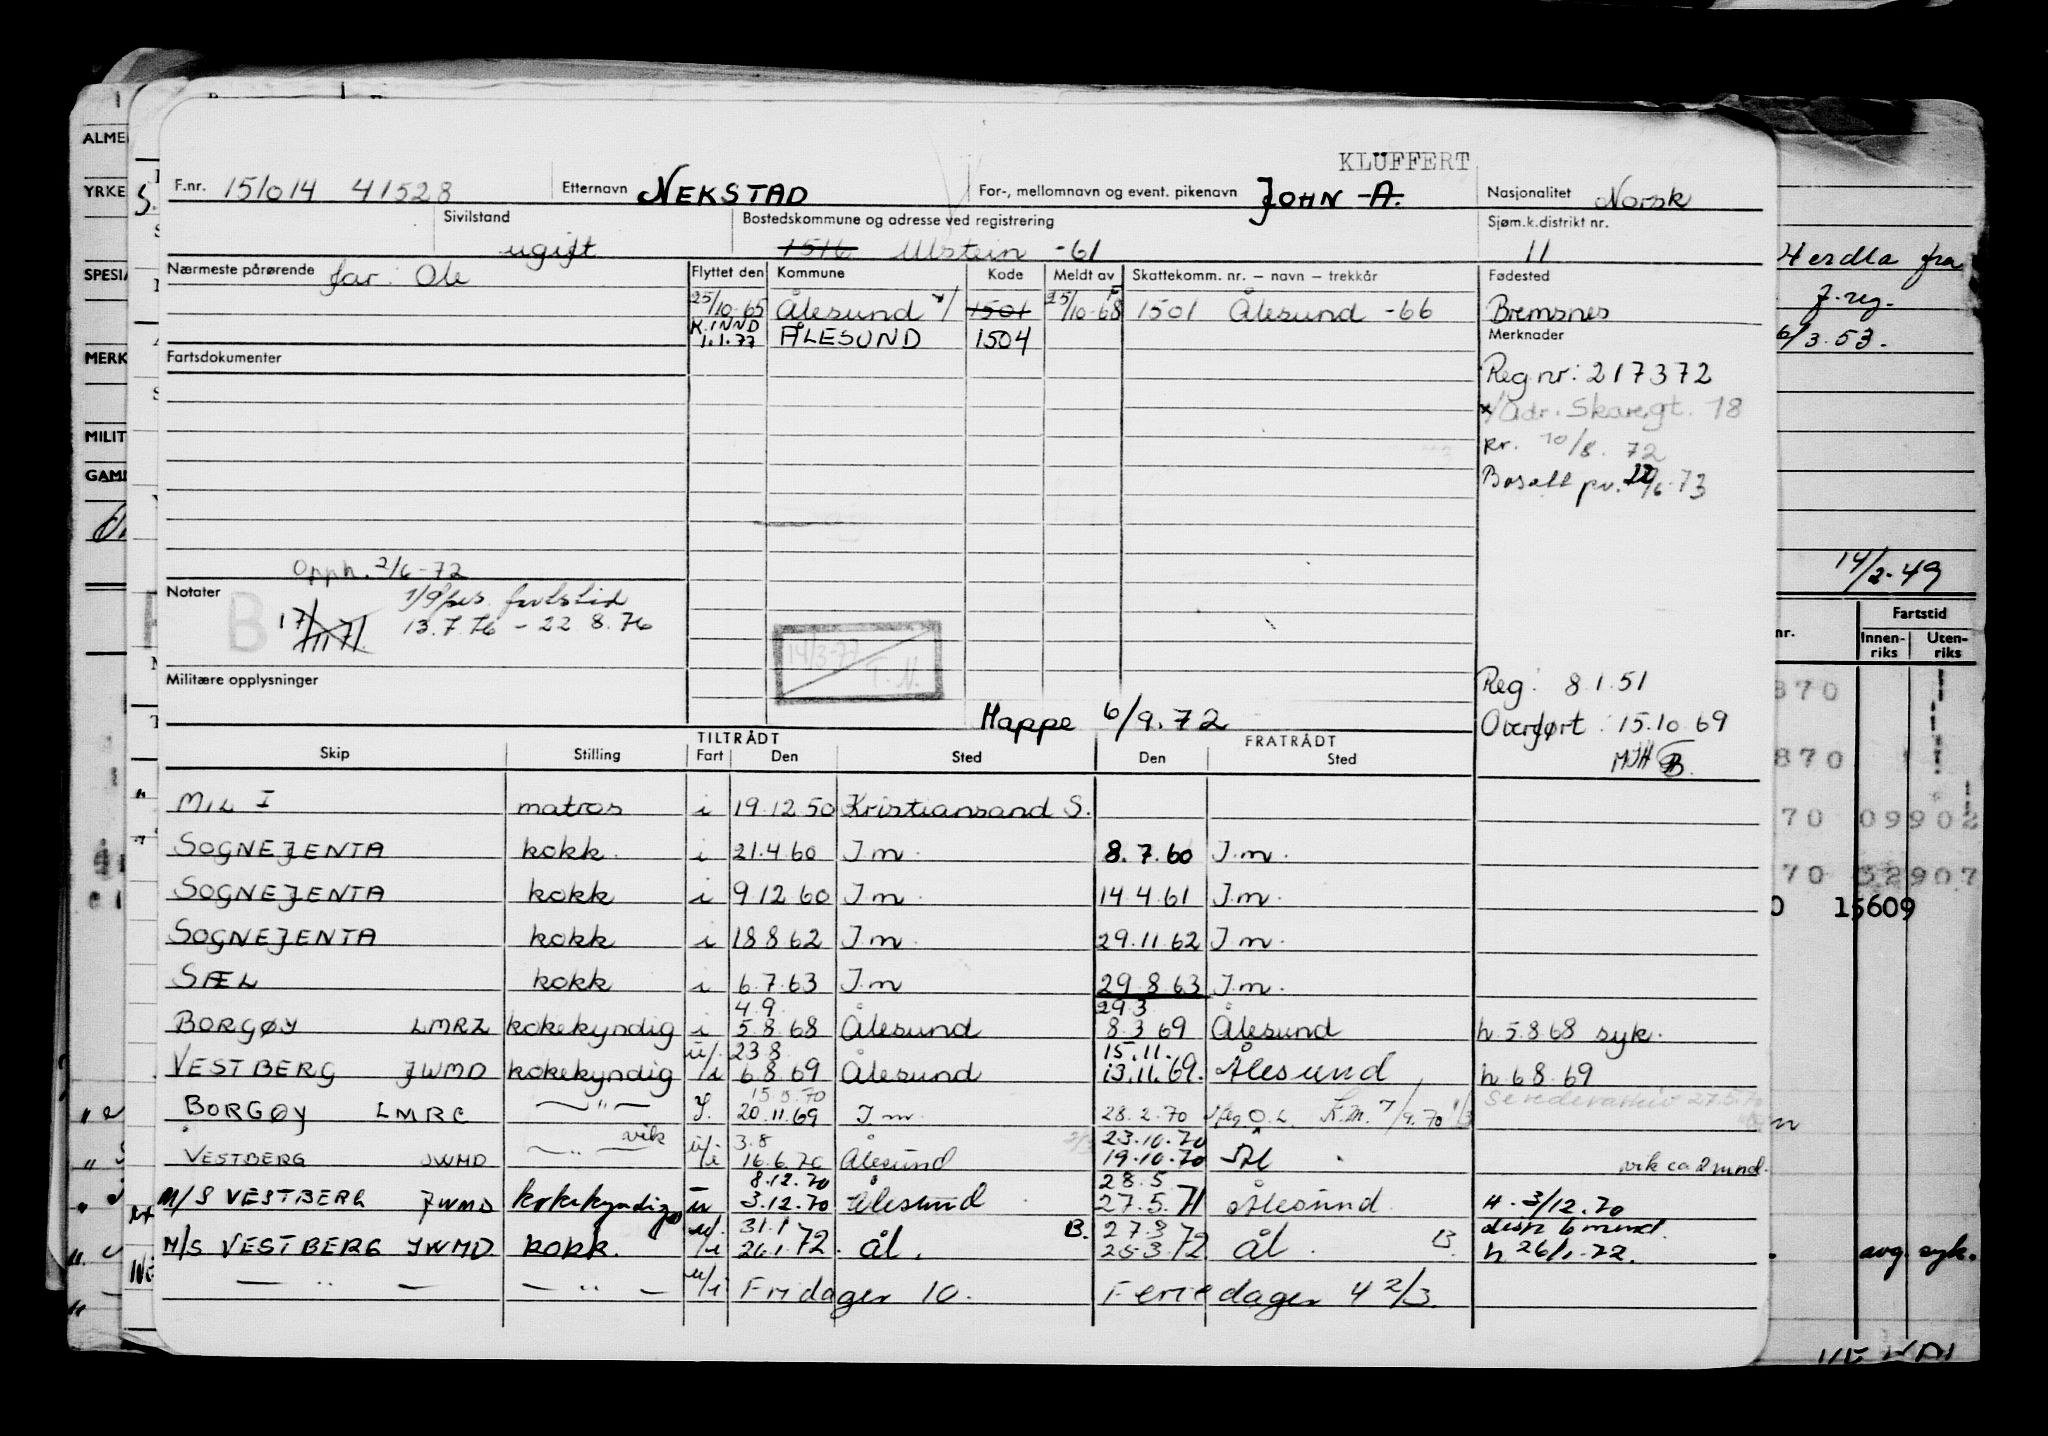 KLUFFERT
F.nr. 151014 41528 Etternavn NEKSTAD For-, mellomnavn og event. pikenavn JOHN A. Nasjonalitet Norsk
Sivilstand ugift Bostedskommune og adresse ved registrering 1516 Ulstein -61 Sjøm.k.distrikt nr. 11
Nærmeste pårørende far: Ole Flyttet den Kommune Kode Meldt av Skattekomm. nr. – navn – trekkår Fødested
25/10-65 Ålesund x/ 1501 25/10-68 1501 Ålesund -66 Bremsnes
K.INND 1.1.77 ÅLESUND 1504 Merknader
Fartsdokumenter
Reg nr: 217372
x/Adr. Skaregt. 18
kr. 10/8. 72
Bosatt pv. 6-73
Opph. 2/6-72
Notater 1/9 fartstid
17/11 71 13.7.76 - 22 8.76
B
14/3-77 T. N.
Militære opplysninger
Reg: 8.1.51
Happe 6/9.72
Overført: 15.10 69
MJH B.
TILTRÅDT FRATRÅDT
Skip Stilling Fart Den Sted Den Sted
MIL I matros i 19.12.50 Kristiansand S.
SOGNEJENTA kokk i 21.4.60 I.m. 8.7.60 I.m.
SOGNEJENTA kokk i 9 12 60 I m. 14.4.61 I.m.
SOGNEJENTA kokk i 18 8 62 I.m. 29.11.62 I.m.
SÆL kokk i 6.7.63 I.m 29.8.63 I.m.
4 9 29 3
BORGØY LMRZ kokekyndig i 5.8.68 Ålesund 8.3 69 Ålesund h 5.8.68 syk.
u/. 23 8 15.11.
VESTBERG JWMD kokekyndig /i 6.8 69 Ålesund 13.11.69. Ålesund h 6 8.69
15.5.70
BORGØY LMRC — " — I. 20.11.69 I.m. 28.2.70 K.M. 7/9.70
vik u/ 3.8 23.10.70
VESTBERG JWMD — " — /i 16.6.70 Ålesund 19.10.70 Ål vik ca 2 mnd.
8.12.70 28.5
M/S VESTBERG JWMD kokekyndig u 3.12.70 Ålesund 27.5.71 Ålesund. H. 3/12.70
u/ 31.1 B. 27.3 disp 6 mnd.
M/S VESTBERG JWMD kokk. /i 26.1 72. ål. 25.3.72 ål. B. h 26/1-72.
— " — — " — u/i Fridager 10. Feriedager 4 2/3.
ALME
YRKE
SPESIA
MERK
MILIT
GAM
S.
Herdla fra
J.reg.
6/3.53.
14/2-49
Fartstid
nr. Innen-riks Uten-riks
870
870
70 09902
70 32907
0 15609
avg. syk.